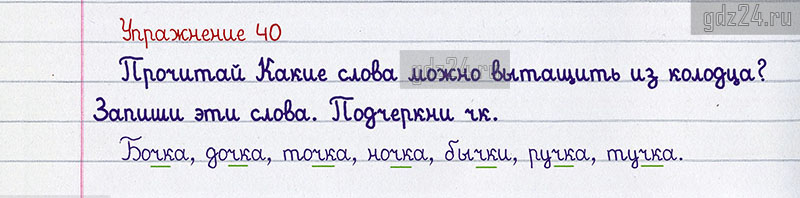 gdz24.ru
Упражнение 40
Прочитай Какие слова можно вытащить из колодца?
gdz24.ru
Запиши эти слова. Подчеркни чк.
Бочка, дочка, точка, ночка, бычки, ручка, тучка.